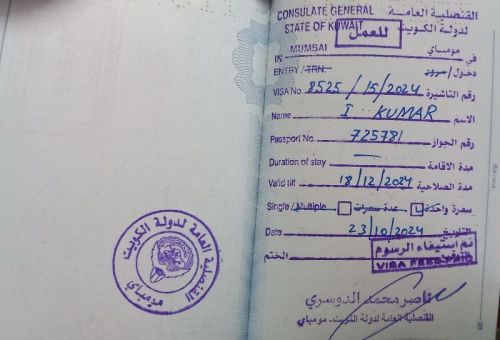 CONSULATE GENERAL القنصلية العامة
STATE OF KUWAIT لدولة الكويت
للعمل
IN MUMBAI مومباي في
ENTRY / TRN. دخول / مرور
VISA No. 8525 / 15 / 2024 رقم التاشيرة
Name I KUMAR الاسم
Passport No. 725781 رقم الجواز
Duration of stay — مدة الاقامة
Valid till 18/12/2024 مدة الصلاحية
Single / Multiple عدة سفرات سفرة واحدة
Date 23/10/2024 التاريخ
تم استيفاء الرسوم
VISA FEES
الختم
ناصر محمد الدوسري
القنصلية العامة لدولة الكويت - مومباي
القنصلية العامة لدولة الكويت
مومباي